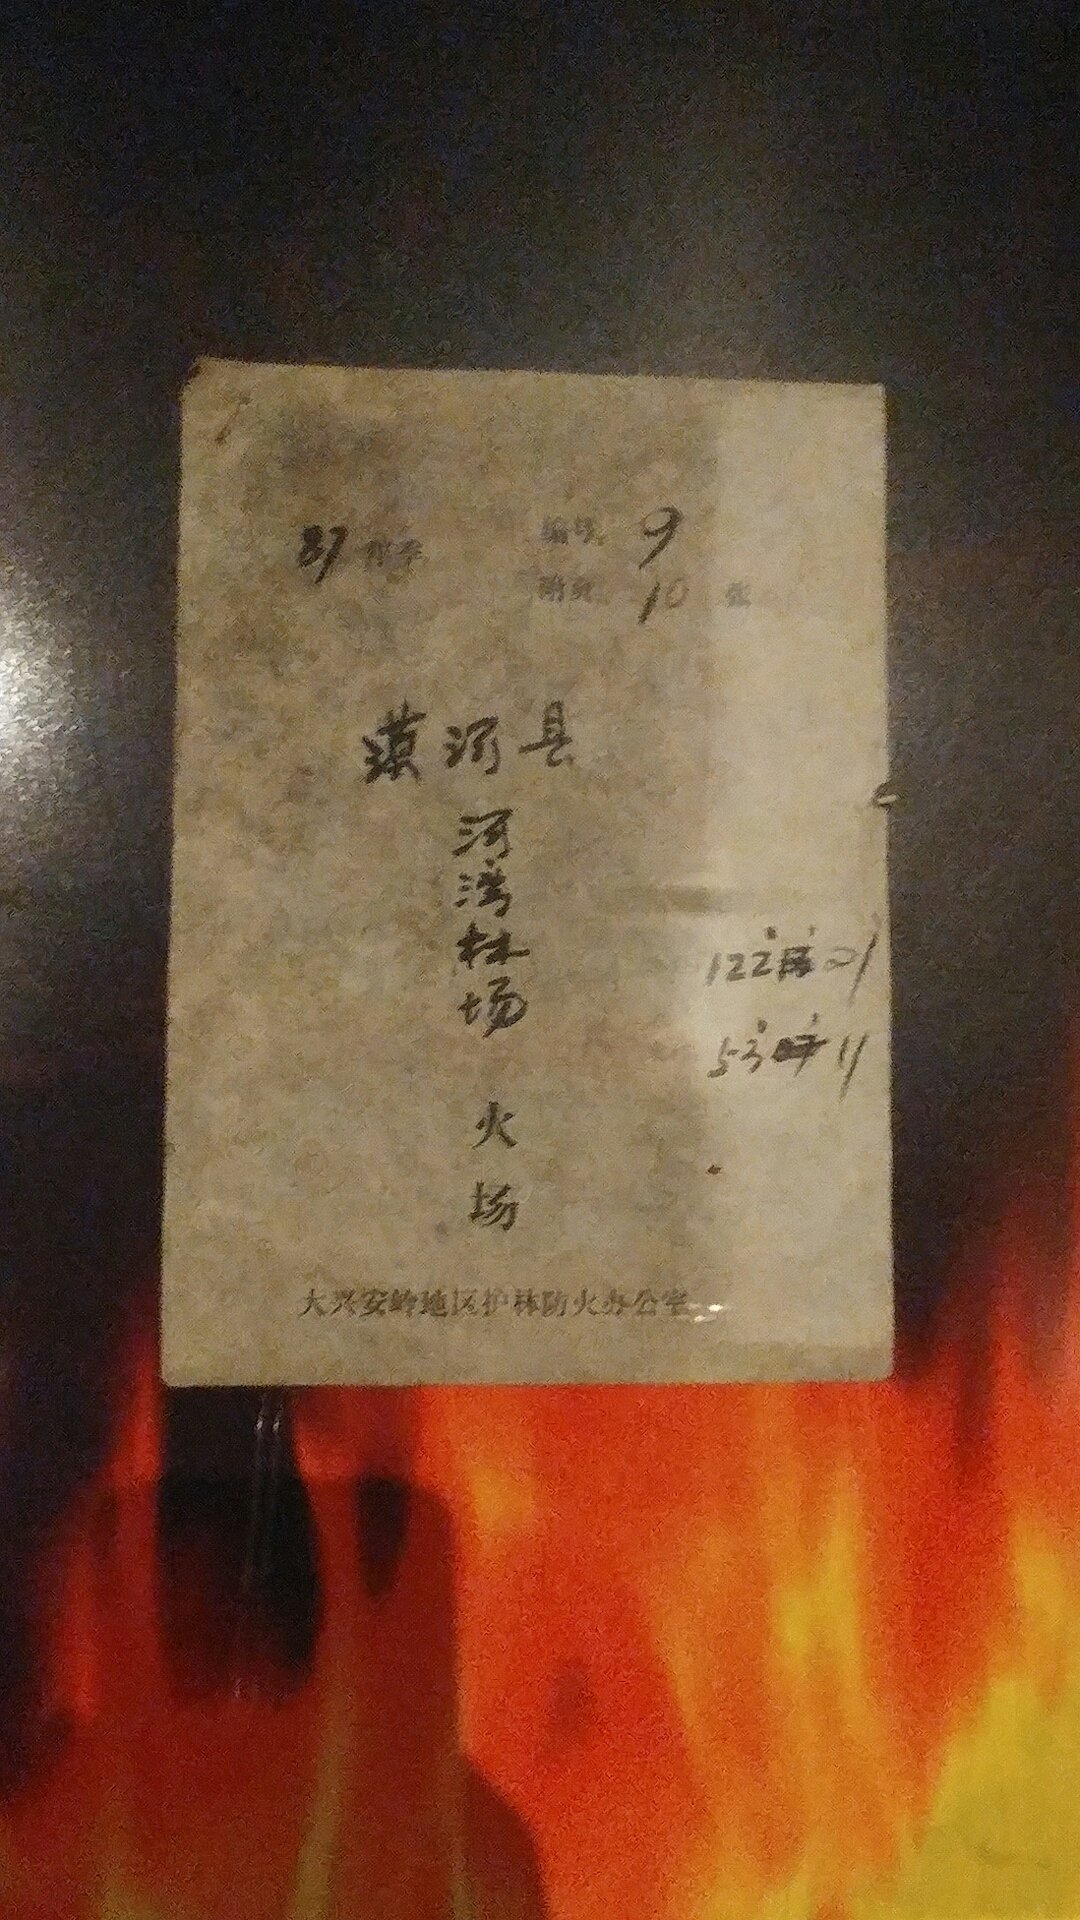 87
编号 9
附页 10 张
漠河县
河湾林场
火场
122°
53°
大兴安岭地区护林防火办公室